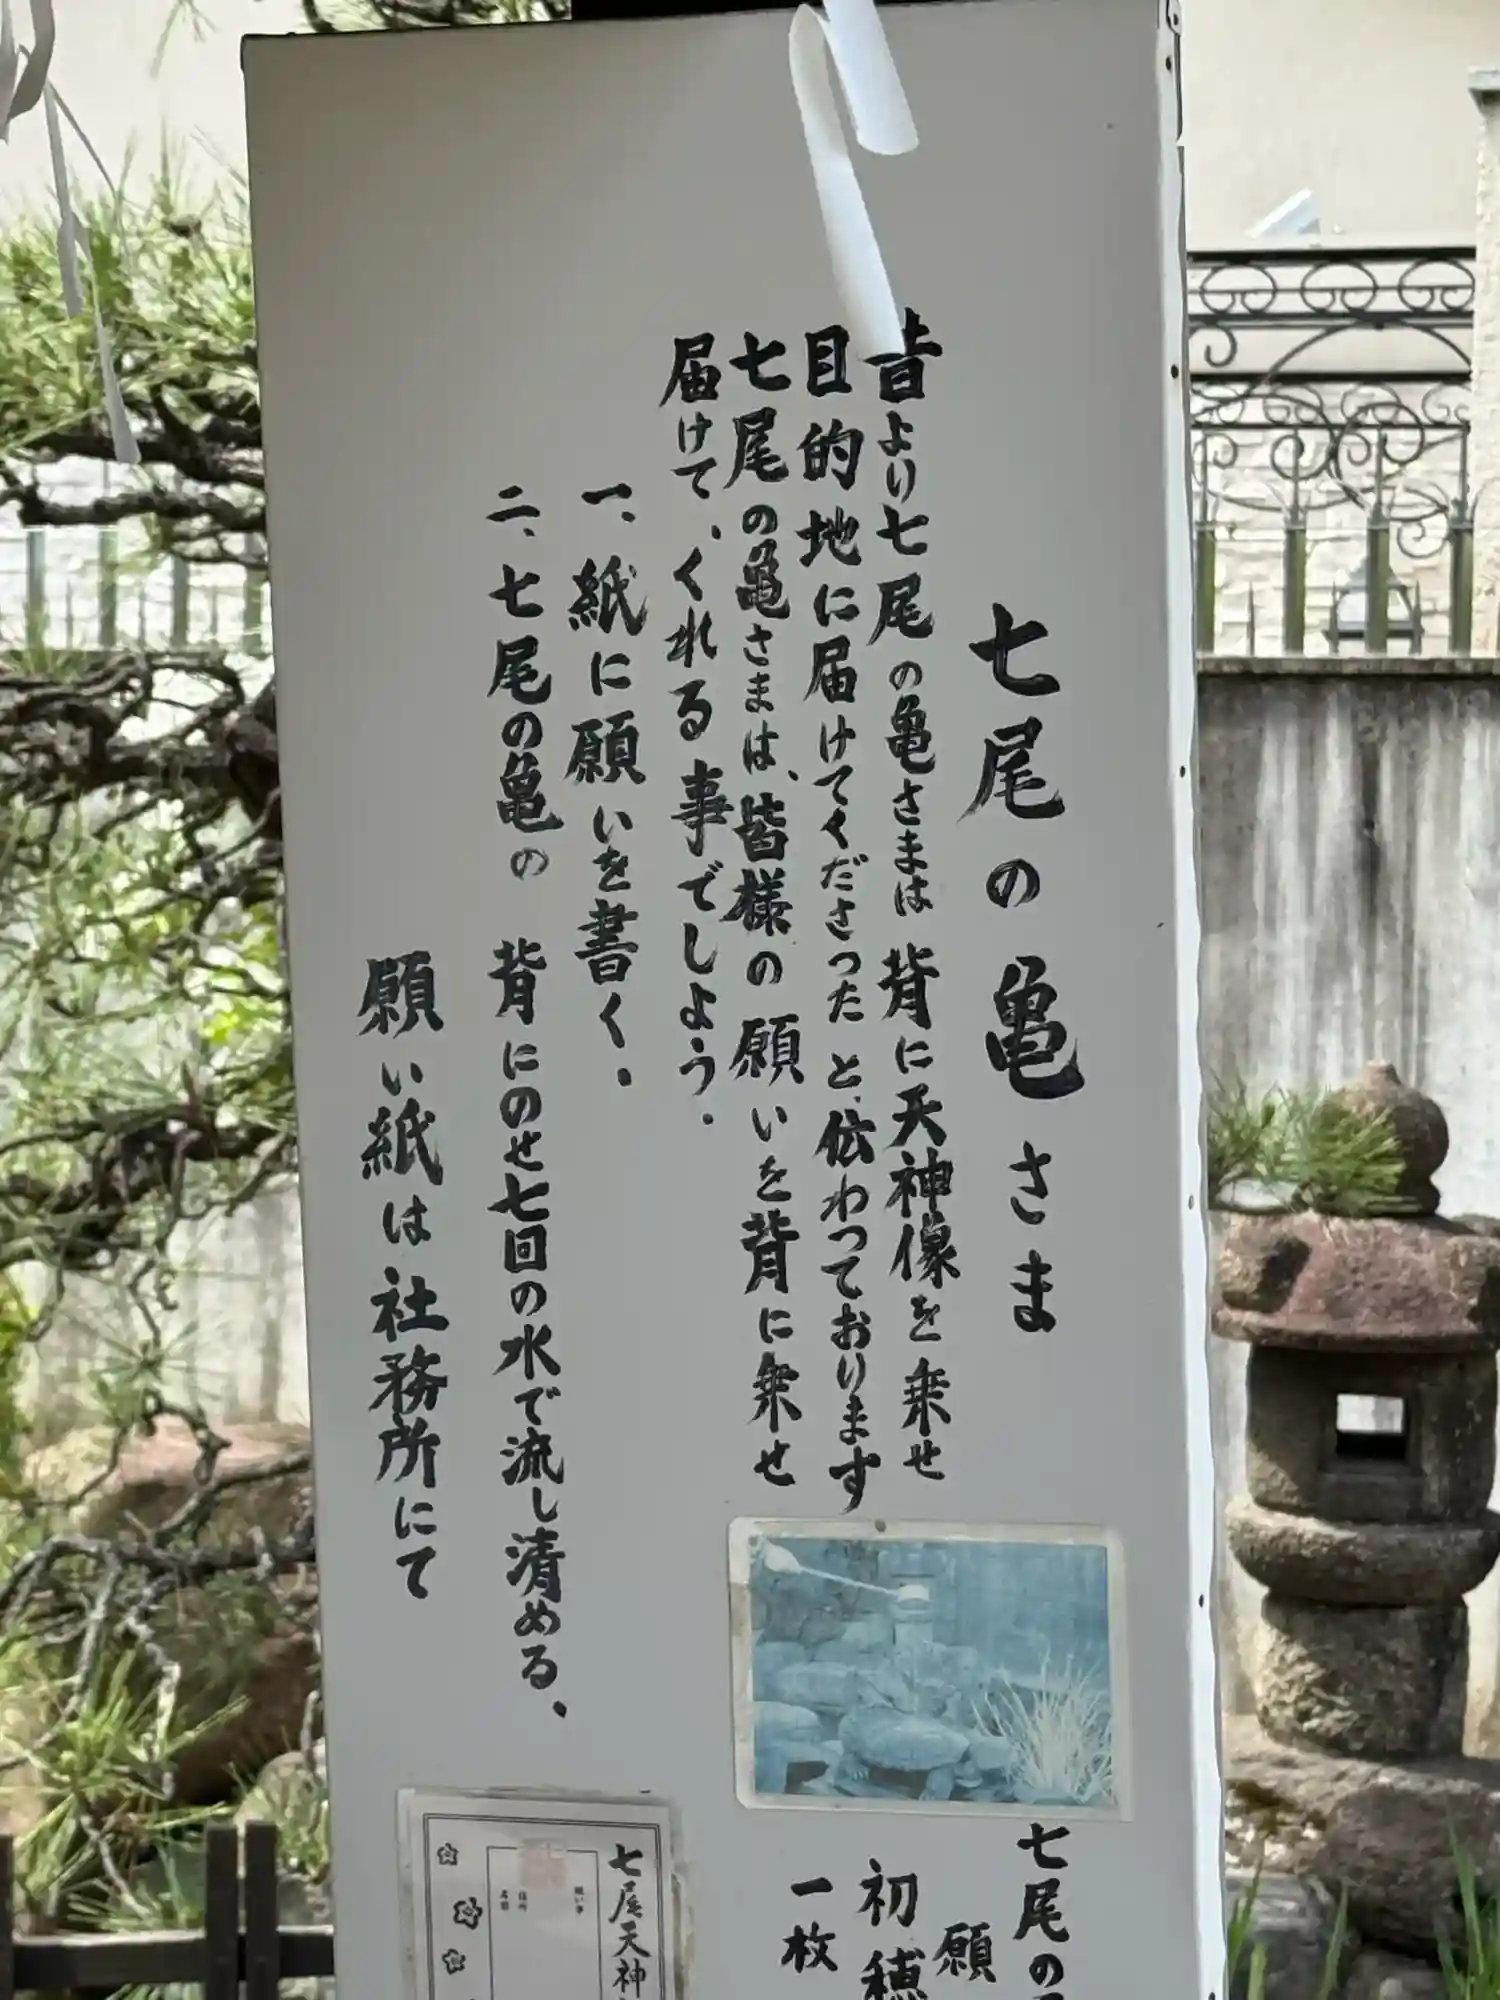 七尾の亀さま
昔より七尾の亀さまは背に天神像を乗せ
目的地に届けてくださったと、伝わっております
七尾の亀さまは、皆様の願いを背に乗せ
届けて、くれる事でしょう。
一、紙に願いを書く。
二、七尾の亀の 背にのせ七回の水で流し清める。
願い紙は社務所にて
七尾の
願
初穂
一枚
七尾天神